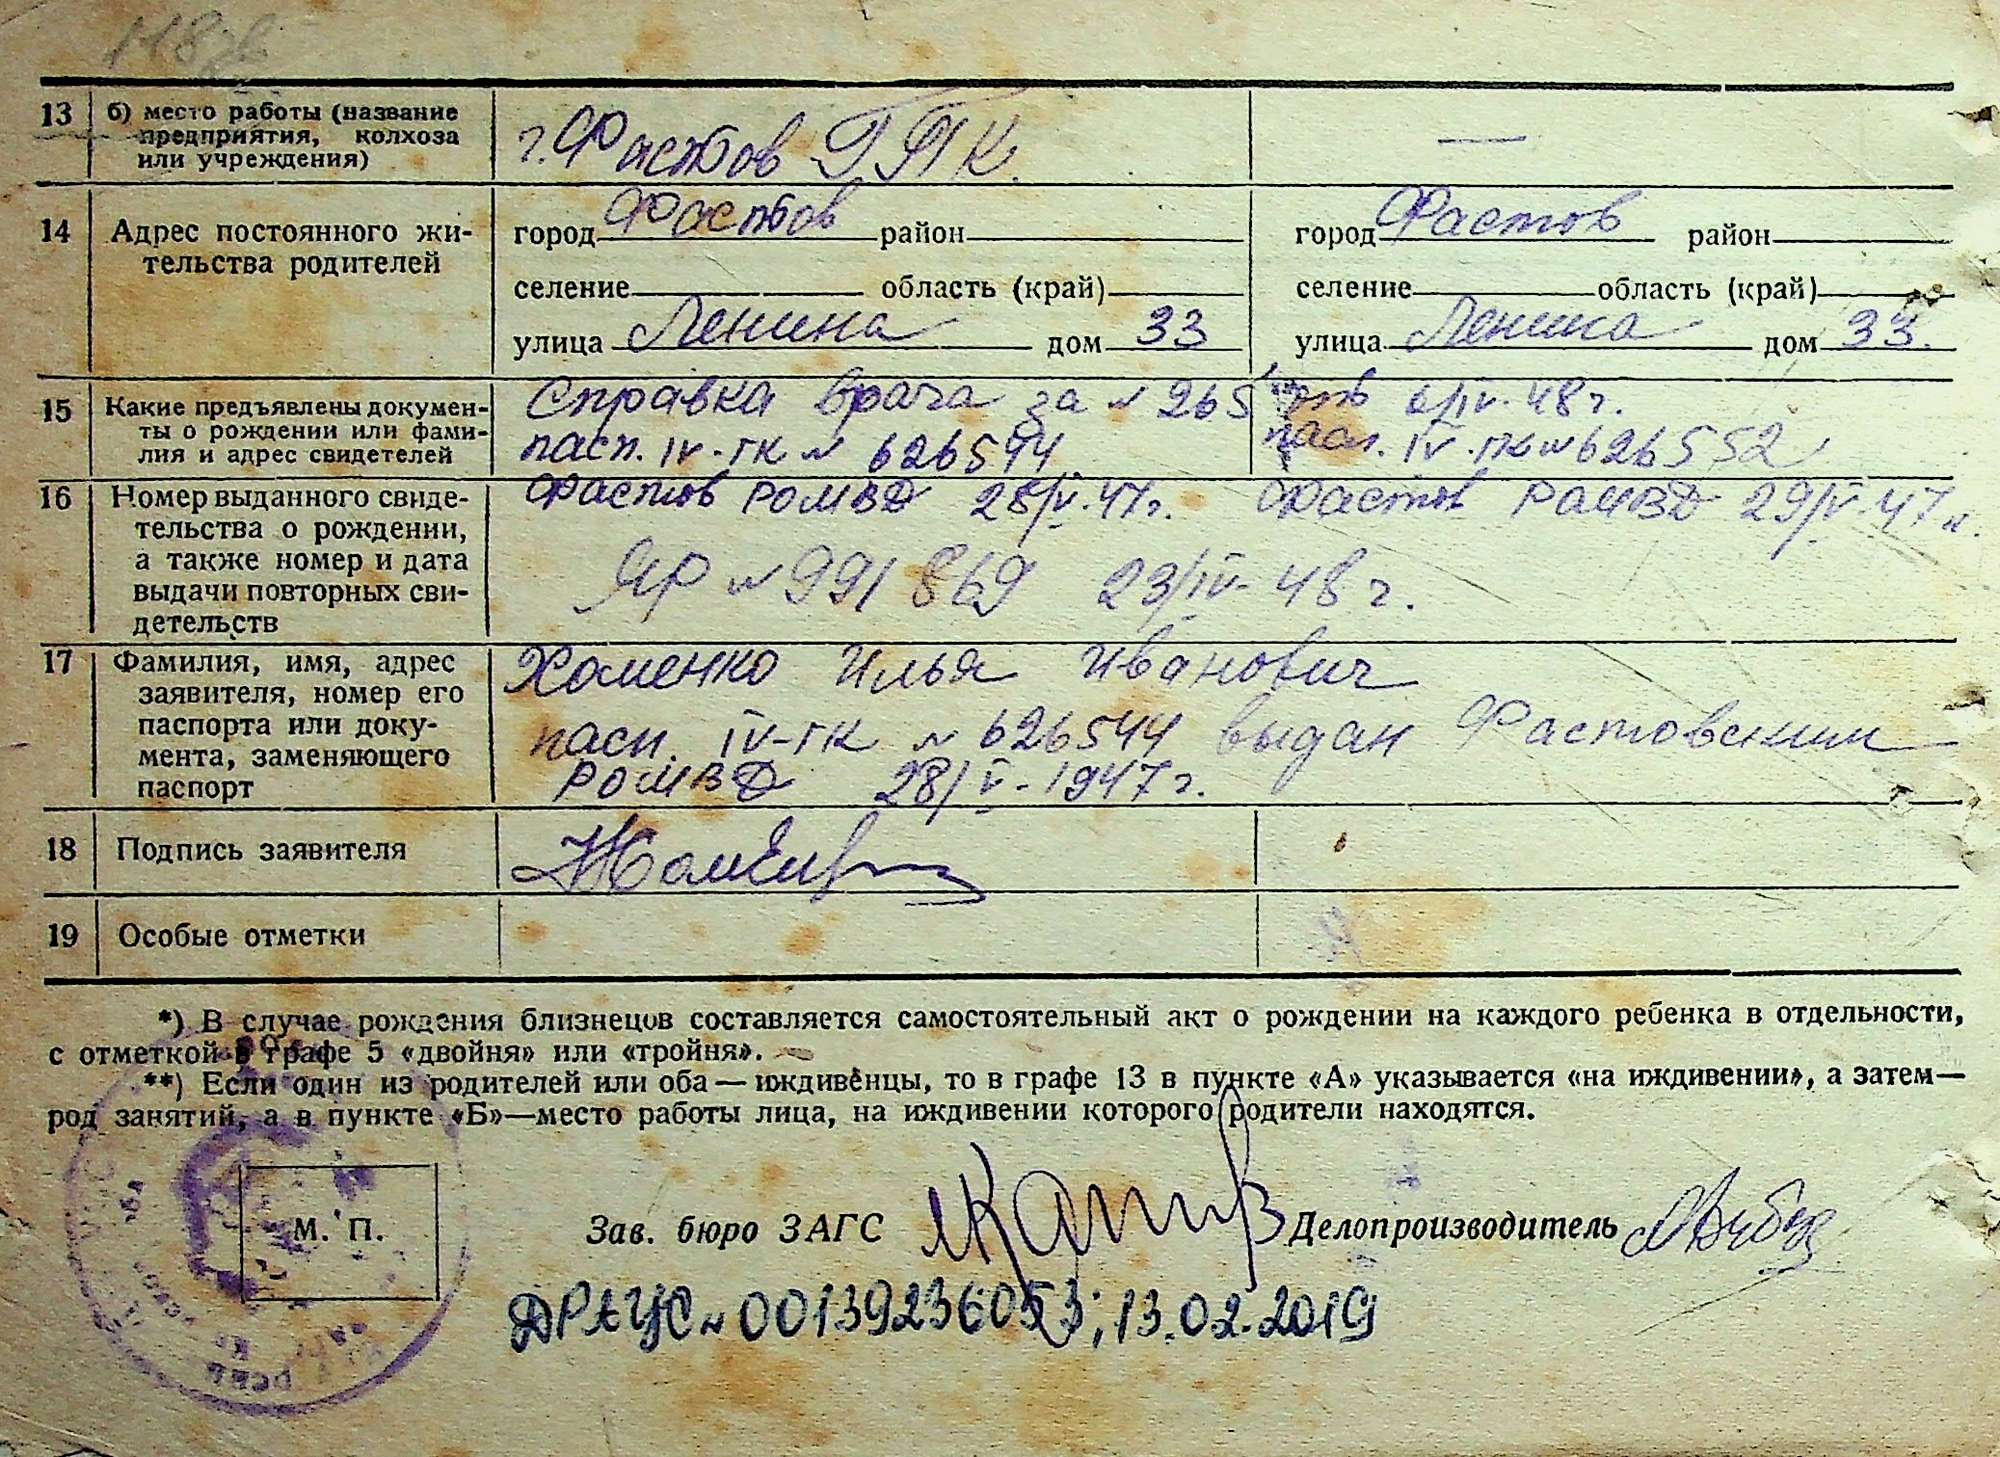 13 б) место работы (название
предприятия, колхоза
или учреждения)
г. Фастов ГПК. —
14 Адрес постоянного жи-
тельства родителей
город Фастов район город Фастов район
селение область (край) селение область (край)
улица Ленина дом 33 улица Ленина дом 33.
15 Какие предъявлены докумен-
ты о рождении или фами-
лия и адрес свидетелей
Справка врача за № 265 6/IV-48 г.
пасп. IV-ГК № 626544 пасп. IV-ГК № 626552
Фастов РОМВД 28/V-47г. Фастов РОМВД 29/V-47г.
16 Номер выданного свиде-
тельства о рождении,
а также номер и дата
выдачи повторных сви-
детельств
ЯР № 991869 23/IV-48 г.
17 Фамилия, имя, адрес
заявителя, номер его
паспорта или доку-
мента, заменяющего
паспорт
Хоменко Илья Иванович
пасп. IV-ГК № 626544 выдан Фастовским
РОМВД 28/V-1947г.
18 Подпись заявителя
19 Особые отметки
*) В случае рождения близнецов составляется самостоятельный акт о рождении на каждого ребенка в отдельности,
с отметкой в графе 5 «двойня» или «тройня».
**) Если один из родителей или оба — иждивенцы, то в графе 13 в пункте «А» указывается «на иждивении», а затем—
род занятий, а в пункте «Б»—место работы лица, на иждивении которого родители находятся.
М. П.
Зав. бюро ЗАГС Делопроизводитель
ДРАЦС № 00139236053; 13.02.2019